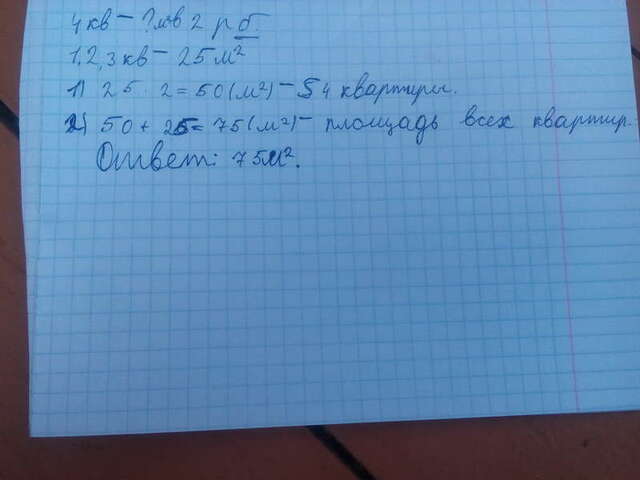 4 кв - ? м в 2 р б.
1,2,3 кв - 25 м²
1) 25 · 2 = 50 (м²) - S 4 квартиры.
2) 50 + 25 = 75 (м²) - площадь всех квартир.
Ответ: 75 м².